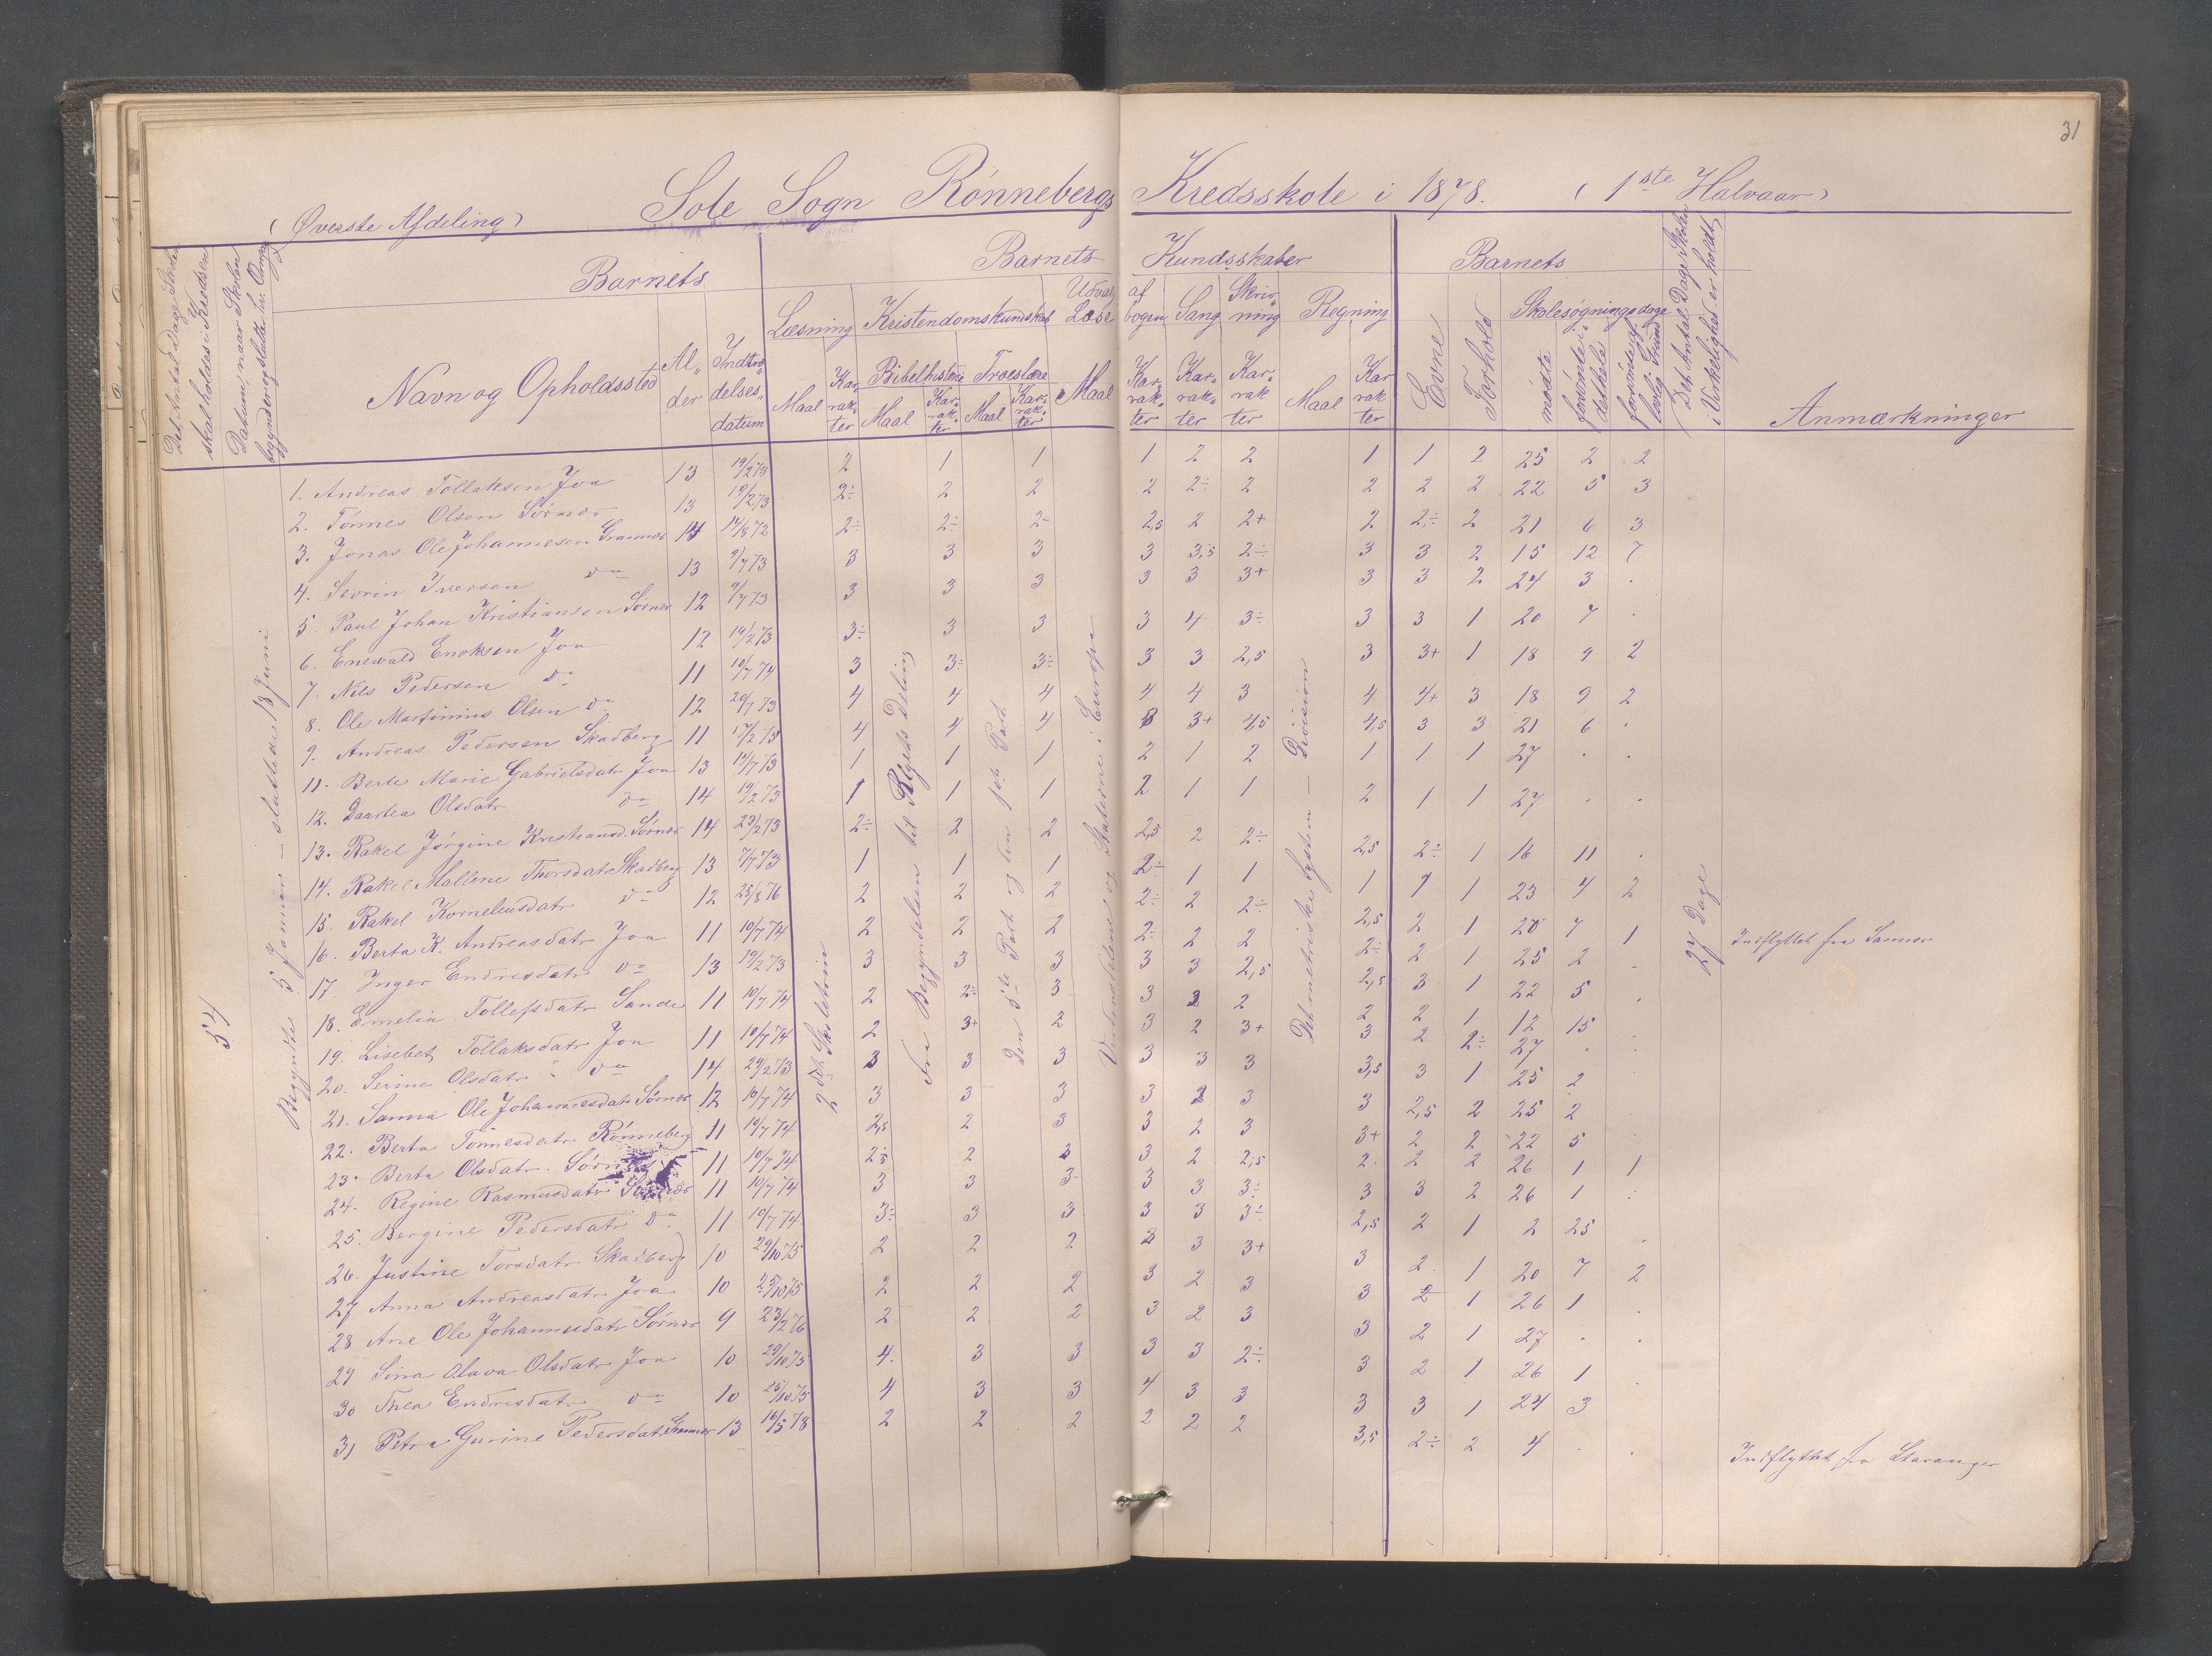 31
(Øverste Afdeling) Sole Sogn Rønnebergs Kredsskole i 1878. (1ste Halvaar)
Det Antal Dage Skolen skal holdes i Kredsen
Datum, naar Skolen begynder og slutter
Barnets
Navn og Opholdssted
Al„der
Indtræ„delses„datum
Barnets Kundsskaber
Læsning
Maal
Kar„rak„ter
Kristendomskundskab
Bibelhistorie
Maal
Kar„rak„ter
Troeslære
Maal
Kar„rak„ter
Udvalg af Læsebogen
Maal
Kar„rak„ter
Sang
Kar„rak„ter
Skriv„ning
Kar„rak„ter
Regning
Maal
Kar„rak„ter
Barnets
Evne
Forhold
Skolesøgningsdage
mødte
forsømte i det hele
forsømte af lovlig Grund
Det Antal Dage Skolen i Virkelighed er holdt
Anmærkninger
54
Begyndte 5 Januar – sluttede 18 Juni
2det Skoletrin
Fra Begyndelsen til Rigets Deling
Den 5te Part og den 1ste Part
Verdensdelene og Staterne i Europa
Det metriske System – Division
27 Dage
1. Andreas Tollaksen Joa 13 19/2 73 2 1 1 1 2 2 1 1 2 25 2 2
2. Tønnes Olsen Sørnes 13 19/2 73 2÷ 2 2 2 2÷ 2 2 2 2 22 5 3
3. Jonas Ole Johannesen Grannes 14 14/8 72 2÷ 2÷ 2- 2,5 2 2+ 2 2÷ 2 21 6 3
4. Sevrin Iversen do 13 9/7 73 3 3 3 3 3,5 2÷ 3 3 2 15 12 7
5 Paul Johan Kristiansen Sørnes 12 9/7 73 3 3 3 3 3 3+ 3 3 2 24 3 .
6. Enevald Enoksen Joa 12 19/2 73 3÷ 3 3 3 4 3÷ 3 3 1 20 7 .
7. Nils Pedersen do 11 10/7 74 3 3÷ 3÷ 3 3 2,5 3 3+ 1 18 9 2
8. Ole Martinius Olsen do 12 20/7 73 4 4 4 4 4 3 4 4+ 3 18 9 2
9. Andreas Pedersen Skadberg 11 17/2 75 4 4 4 3 3+ 4,5 4,5 3 3 21 6 .
11. Berte Marie Gabrielsdatr Joa 13 14/7 73 1 1 1 2 1 2 1 1 1 27 . .
12. Daartea Olsdatr do 14 19/2 73 1 1 1 2 1 1 2 1 1 27 . .
13. Rakel Jørgine Kristiansd. Sørnes 14 23/2 73 2÷ 2 2 2,5 2 2÷ 2,5 2÷ 1 16 11 .
14. Rakel Mallene Thorsdatr Skadberg 13 7/7 73 1 1 1 2÷ 1 1 1 1 1 23 4 2
15. Rakel Korneliusdatr do 12 25/8 76 2 2 2 2÷ 2 2÷ 2,5 2 1 20 7 1 Indflyttet fra
16. Berta K. Andreasdatr Joa 11 10/7 74 2 2 2 2÷ 2 2 2÷ 2 1 25 2 .
17. Inger Endresdatr do 13 19/2 73 3 3 3 3 3 2,5 2,5 3 1 22 5 .
18. Emelia Tollefsdatr Sande 11 10/7 74 2 2÷ 3 3 3 2 2 2 1 12 15 .
19. Lisebet Tollaksdatr Joa 11 10/7 74 2 3+ 2 3 2 3+ 3 2 2÷ 27 . .
20. Serine Olsdatr do 14 29/2 73 3 3 3 3 3 3 3,5 3 1 25 2 .
21. Sanna Ole Johannesdatr Sørnes 12 10/7 74 3 3 3 3 2 3 3 2,5 2 25 2
22. Berta Tønnesdatr Rønneberg 11 10/7 74 2,5 2 3 3 2 3 3+ 2 2 22 5 .
23. Berta Olsdatr. Sørnes 11 10/7 74 2,5 2 3 3 2 2,5 2. 2 2 26 1 1
24. Regine Rasmusdatr 11 10/7 74 3 3 3- 3 3 3÷ 3 3 2 26 1 .
25. Bergine Pedersdatr do 11 10/7 74 3÷ 3 3 3 3 3÷ 2,5 2 1 2 25 .
26. Justine Torsdatr Skadberg 10 29/10 75 2 2 2 3 3 3+ 3 2. 1 20 7 2
27 Anna Andreasdatr Joa 10 29/10 75 2 2 2 3 2 3 3 2 1 26 1 .
28 Ane Ole Johannesdatr Sørnes 9 23/2 76 2 2 2 3 2 3 3 2 1 27 . .
29 Sina Olava Olsdatr Joa 10 29/10 75 4. 3 3 3 3 2÷ 3 2 1 26 1 .
30 Thea Endresdatr do 10 25/10 75 4 3 3 4 3 3 3 3 1 24 3
31 Petra Gurine Pedersdatr 13 16/5 78 2 2 2 2 2 2 3,5 2÷ 2 4 . . Indflyttet fra Stavanger